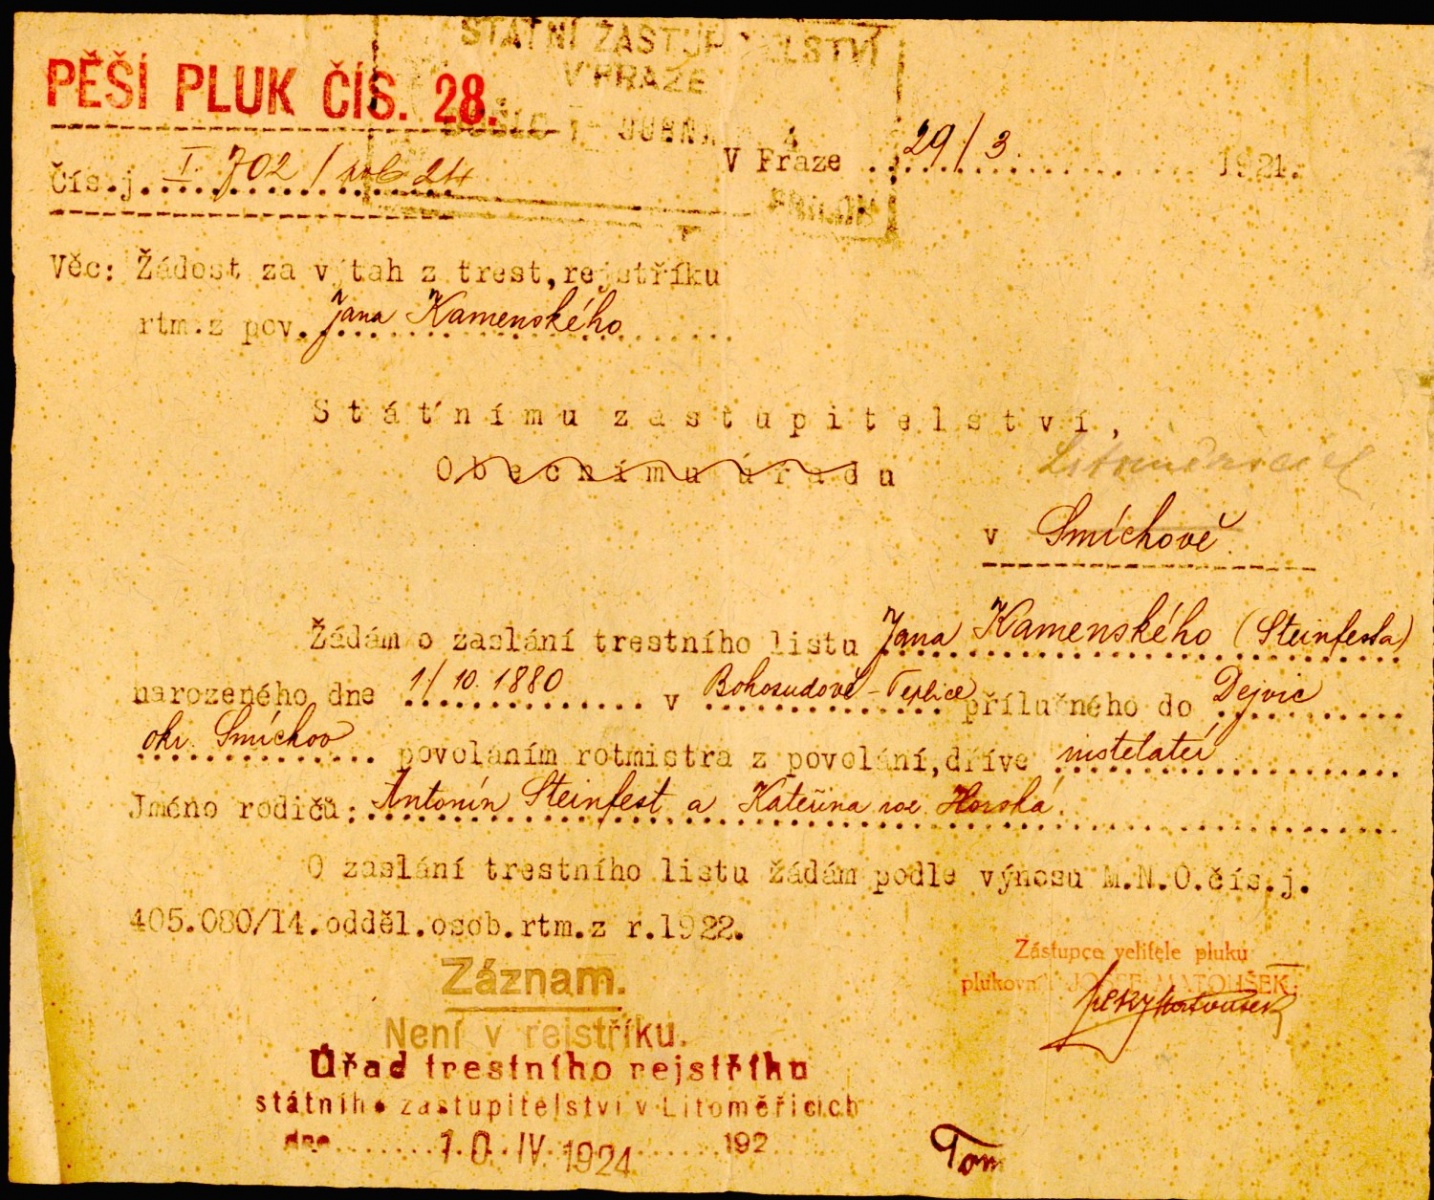 STÁTNÍ ZASTUPITELSTVÍ
V PRAZE
PĚŠÍ PLUK ČÍS. 28.
DOŠLO
V Praze 29/3 1924.
Čís.j. I. 702/ 24
Věc: Žádost za výtah z trest,rejstříku
rtm.z pov. Jana Kamenského
Státnímu zastupitelství,
Obecnímu úřadu
v Smíchově
Žádám o zaslání trestního listu Jana Kamenského (Steinfesta)
narozeného dne 1/10. 1880 v Bohosudově - Teplice přílučného do Dejvic
okr. Smíchov povoláním rotmistra z povolání,dříve instelatér
Jméno rodičů: Antonín Steinfest a Kateřina roz. Horská.
O zaslání trestního listu žádám podle výnosu M.N.O.čís.j.
405.080/14.odděl.osob.rtm.z r.1922.
Zástupce velitele pluku
plukovn. JOSEF MATOUŠEK.
Záznam.
Není v rejstříku.
Úřad trestního rejstříku
státního zastupitelství v Litoměřicích
dne 10. IV. 1924 192